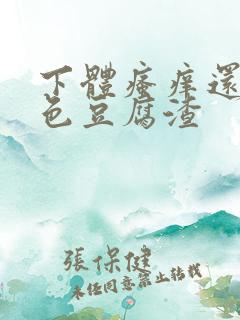 下體瘙癢還
色豆腐渣
張保健
未经同意禁止转载